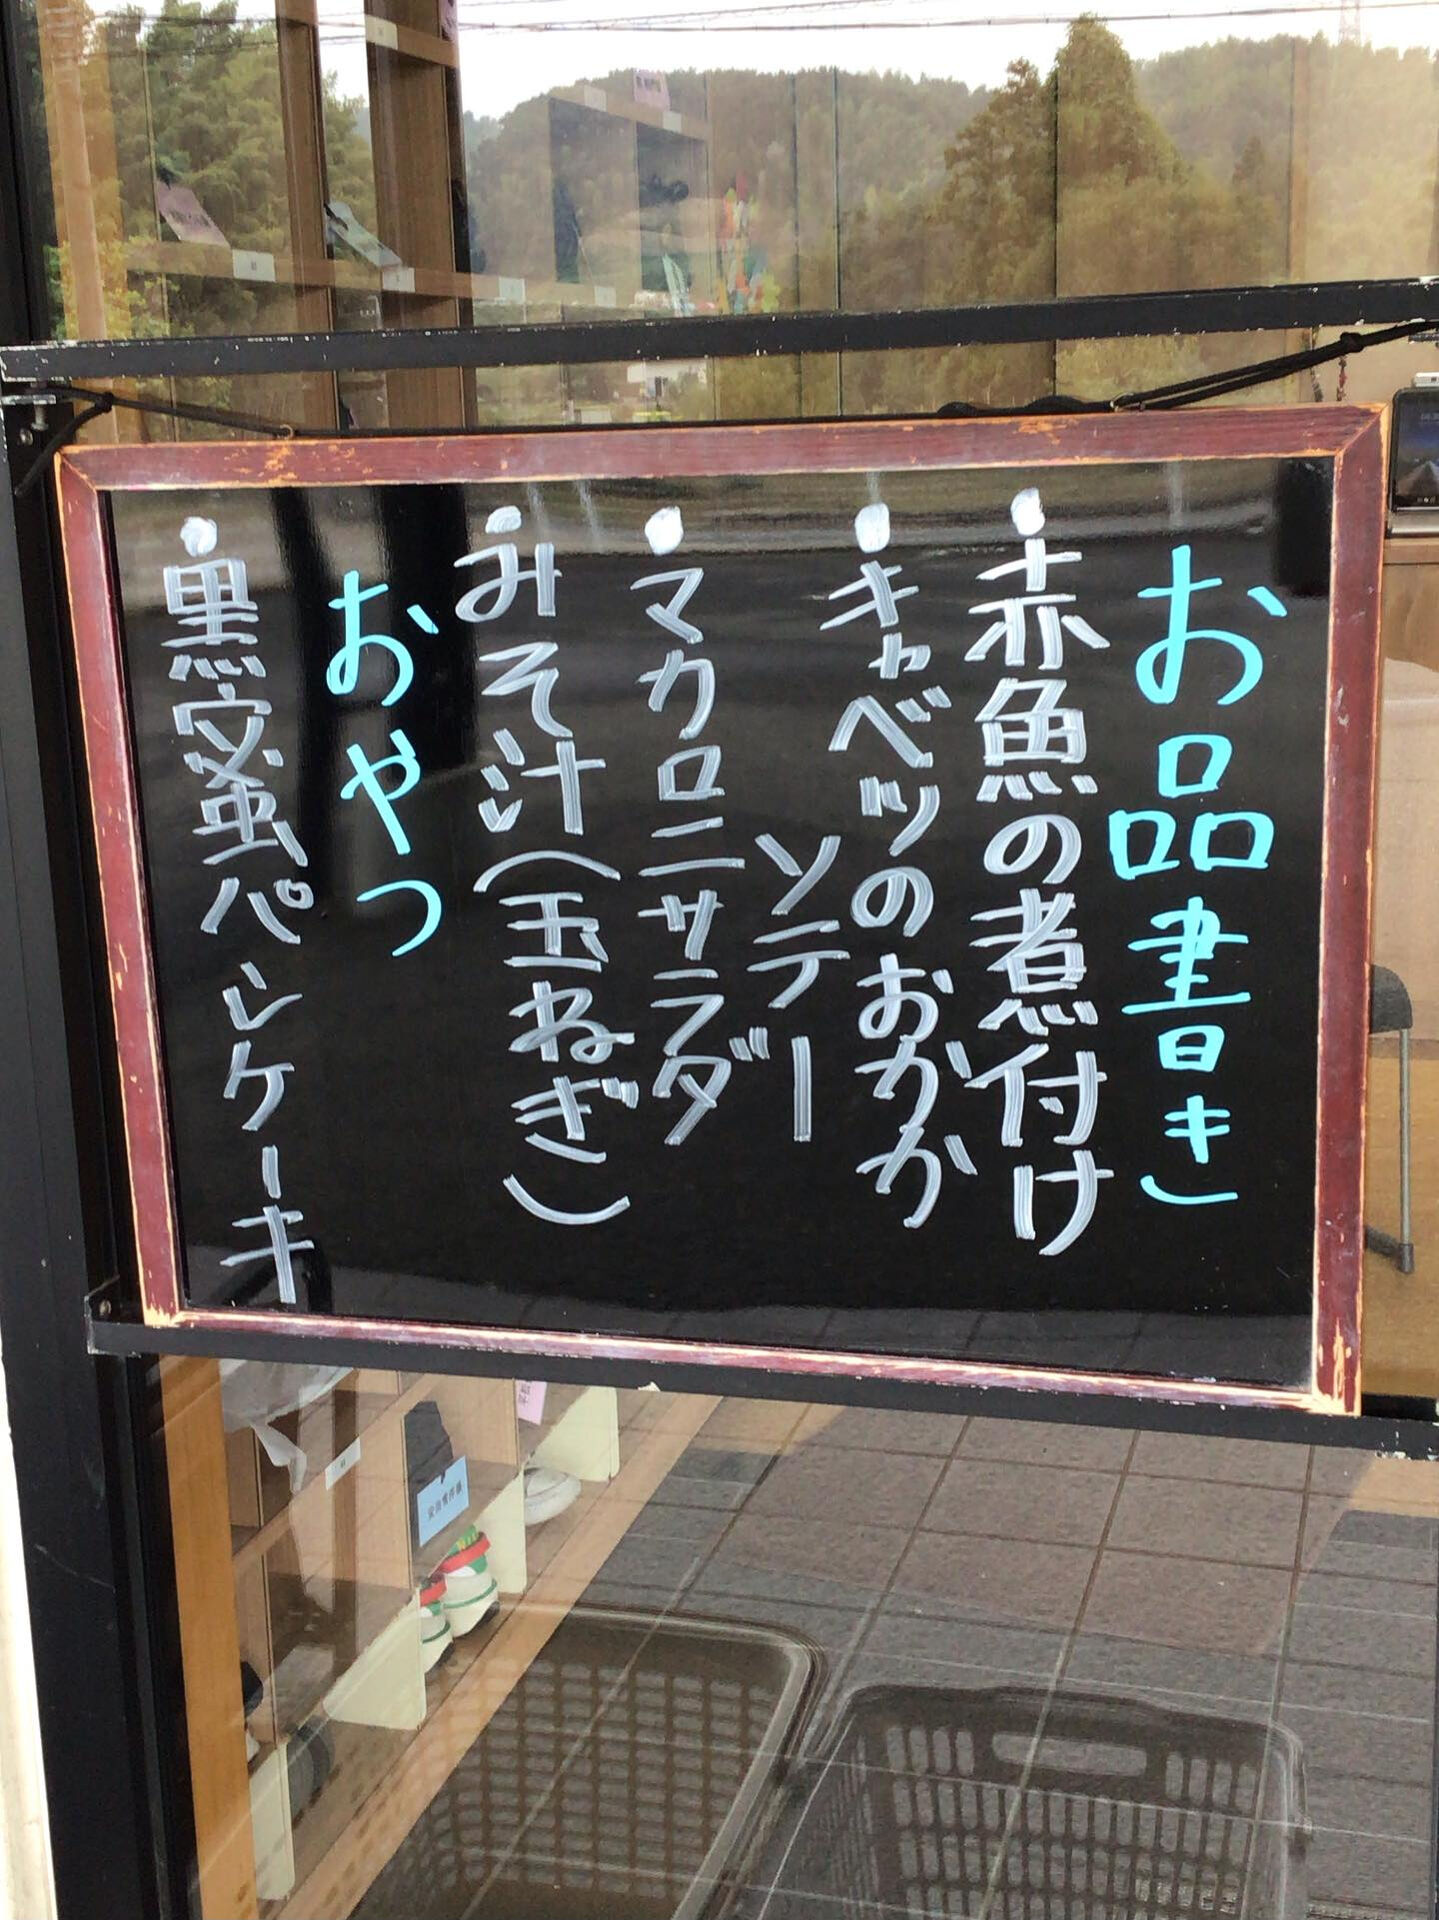 お品書き
・赤魚の煮付け
・キャベツのおかか
ソテー
・マカロニサラダ
・みそ汁(玉ねぎ)
おやつ
・黒蜜パンケーキ